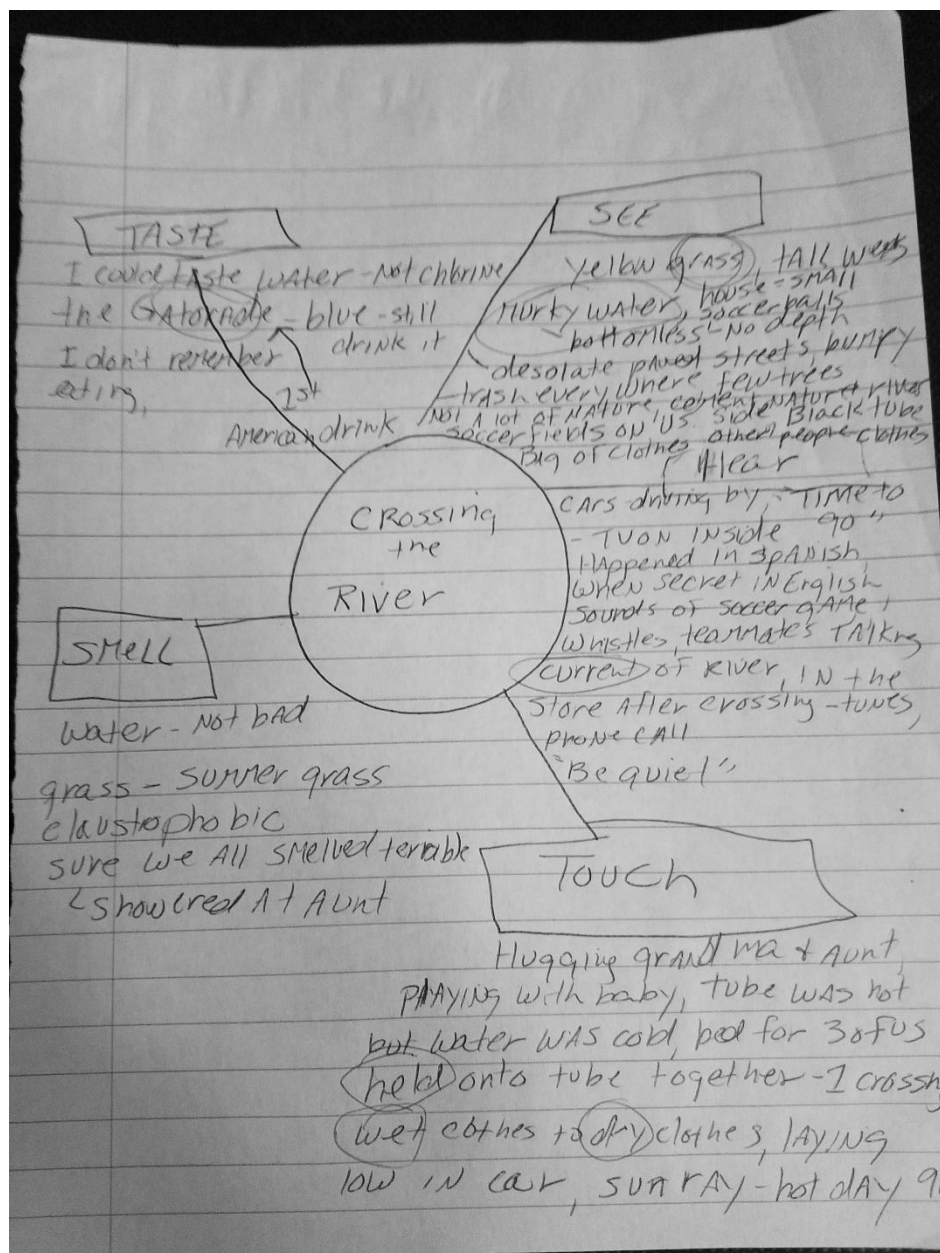 TASTE
I could taste water - Not chlorine
the GAtorade - blue - still
drink it
I don't remember
eating,
1st
American drink
SEE
Yellow grass, tall weeds
Murky water, house - small
bottomless - No depth, soccer balls
desolate paved streets, bumpy
trash everywhere, few trees
Not A lot of NAture, cement, NAture river
soccer fields on U.S. side Black tube
Bag of clothes other people clothes
Crossing
the
River
Hear
CArs driving by, "TIME to
- TV ON INside go"
HAppened in SpANish,
when secret iN English
sounds of soccer gAMe,
whistles, teammates TAlking
current of River, IN the
Store After crossing - tunes,
phone CAll
"Be quiet"
SMell
Water - Not bAd
grass - summer grass
claustrophobic
sure we All smelved terrible
showered At Aunt
Touch
Hugging grANd ma & Aunt,
PlAYING with baby, tube wAs hot
but water WAS cold, bed for 3 of US
held onto tube together - 1 crossing
wet cothes to dry clothes, lAYING
low IN car, sun rAy - hot dAY